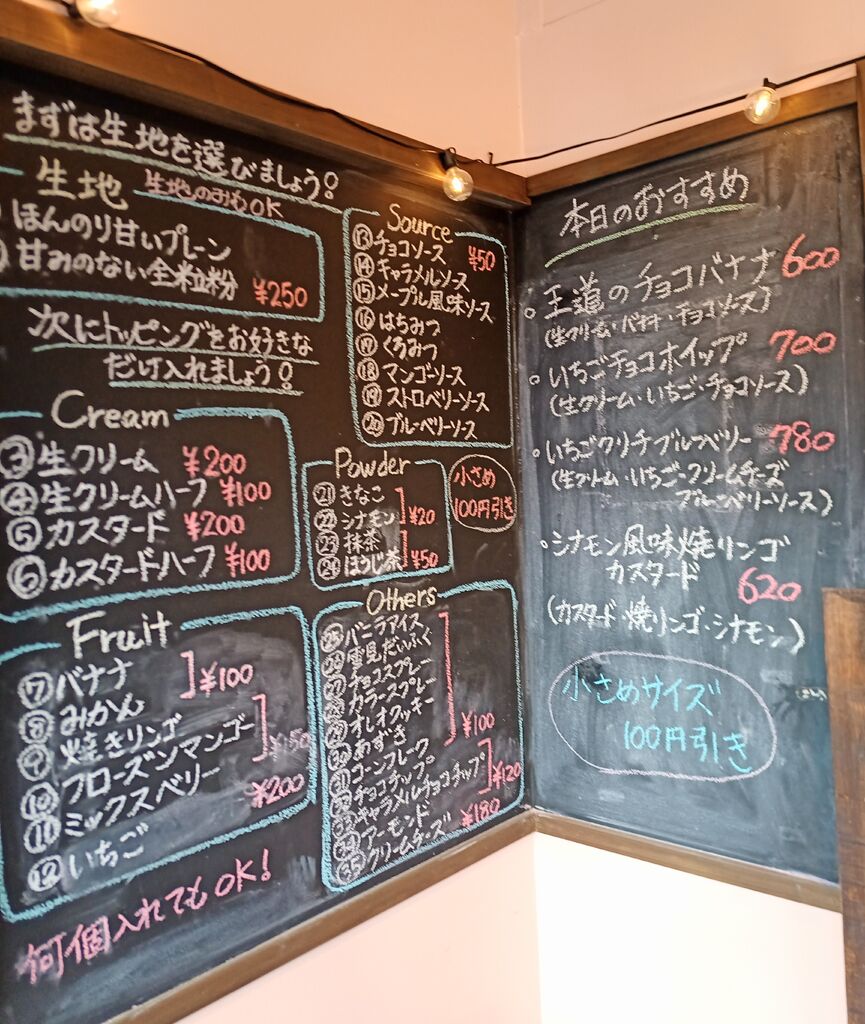 まずは生地を選びましょう!
生地 生地のおむOK
ほんのり甘いプレーン
甘みのない全粒粉 ¥250
次にトッピングをお好きな
だけ入れましょう!
Cream
③生クリーム ¥200
④生クリームハーフ ¥100
⑤カスタード ¥200
⑥カスタードハーフ ¥100
Fruit
⑦バナナ ¥100
⑧みかん
⑨焼きリンゴ ¥150
⑩フローズンマンゴー
⑪ミックスベリー ¥200
⑫いちご
何個入れてもOK!
Source
⑬チョコソース ¥50
⑭キャラメルソース
⑮メープル風味ソース
⑯はちみつ
⑰くろみつ
⑱マンゴーソース
⑲ストロベリーソース
⑳ブルーベリーソース
Powder
㉑きなこ
㉒シナモン ¥20
㉓抹茶
㉔ほうじ茶 ¥50
小さめ
100円引き
Others
㉕バニラアイス
㉖雪見だいふく
㉗チョコスプレー
㉘カラースプレー
㉙オレオクッキー
㉚あずき ¥100
㉛コーンフレーク
㉜チョコチップ
㉝キャラメルチョコチップ ¥120
㉞アーモンド
㉟クリームチーズ ¥180
本日のおすすめ
。王道のチョコバナナ 600
(生クリーム・バナナ・チョコソース)
。いちごチョコホイップ 700
(生クリーム・いちご・チョコソース)
。いちごクリチブルーベリー 780
(生クリーム・いちご・クリームチーズ
ブルーベリーソース)
。シナモン風味焼リンゴ
カスタード 620
(カスタード・焼リンゴ・シナモン)
小さめサイズ
100円引き